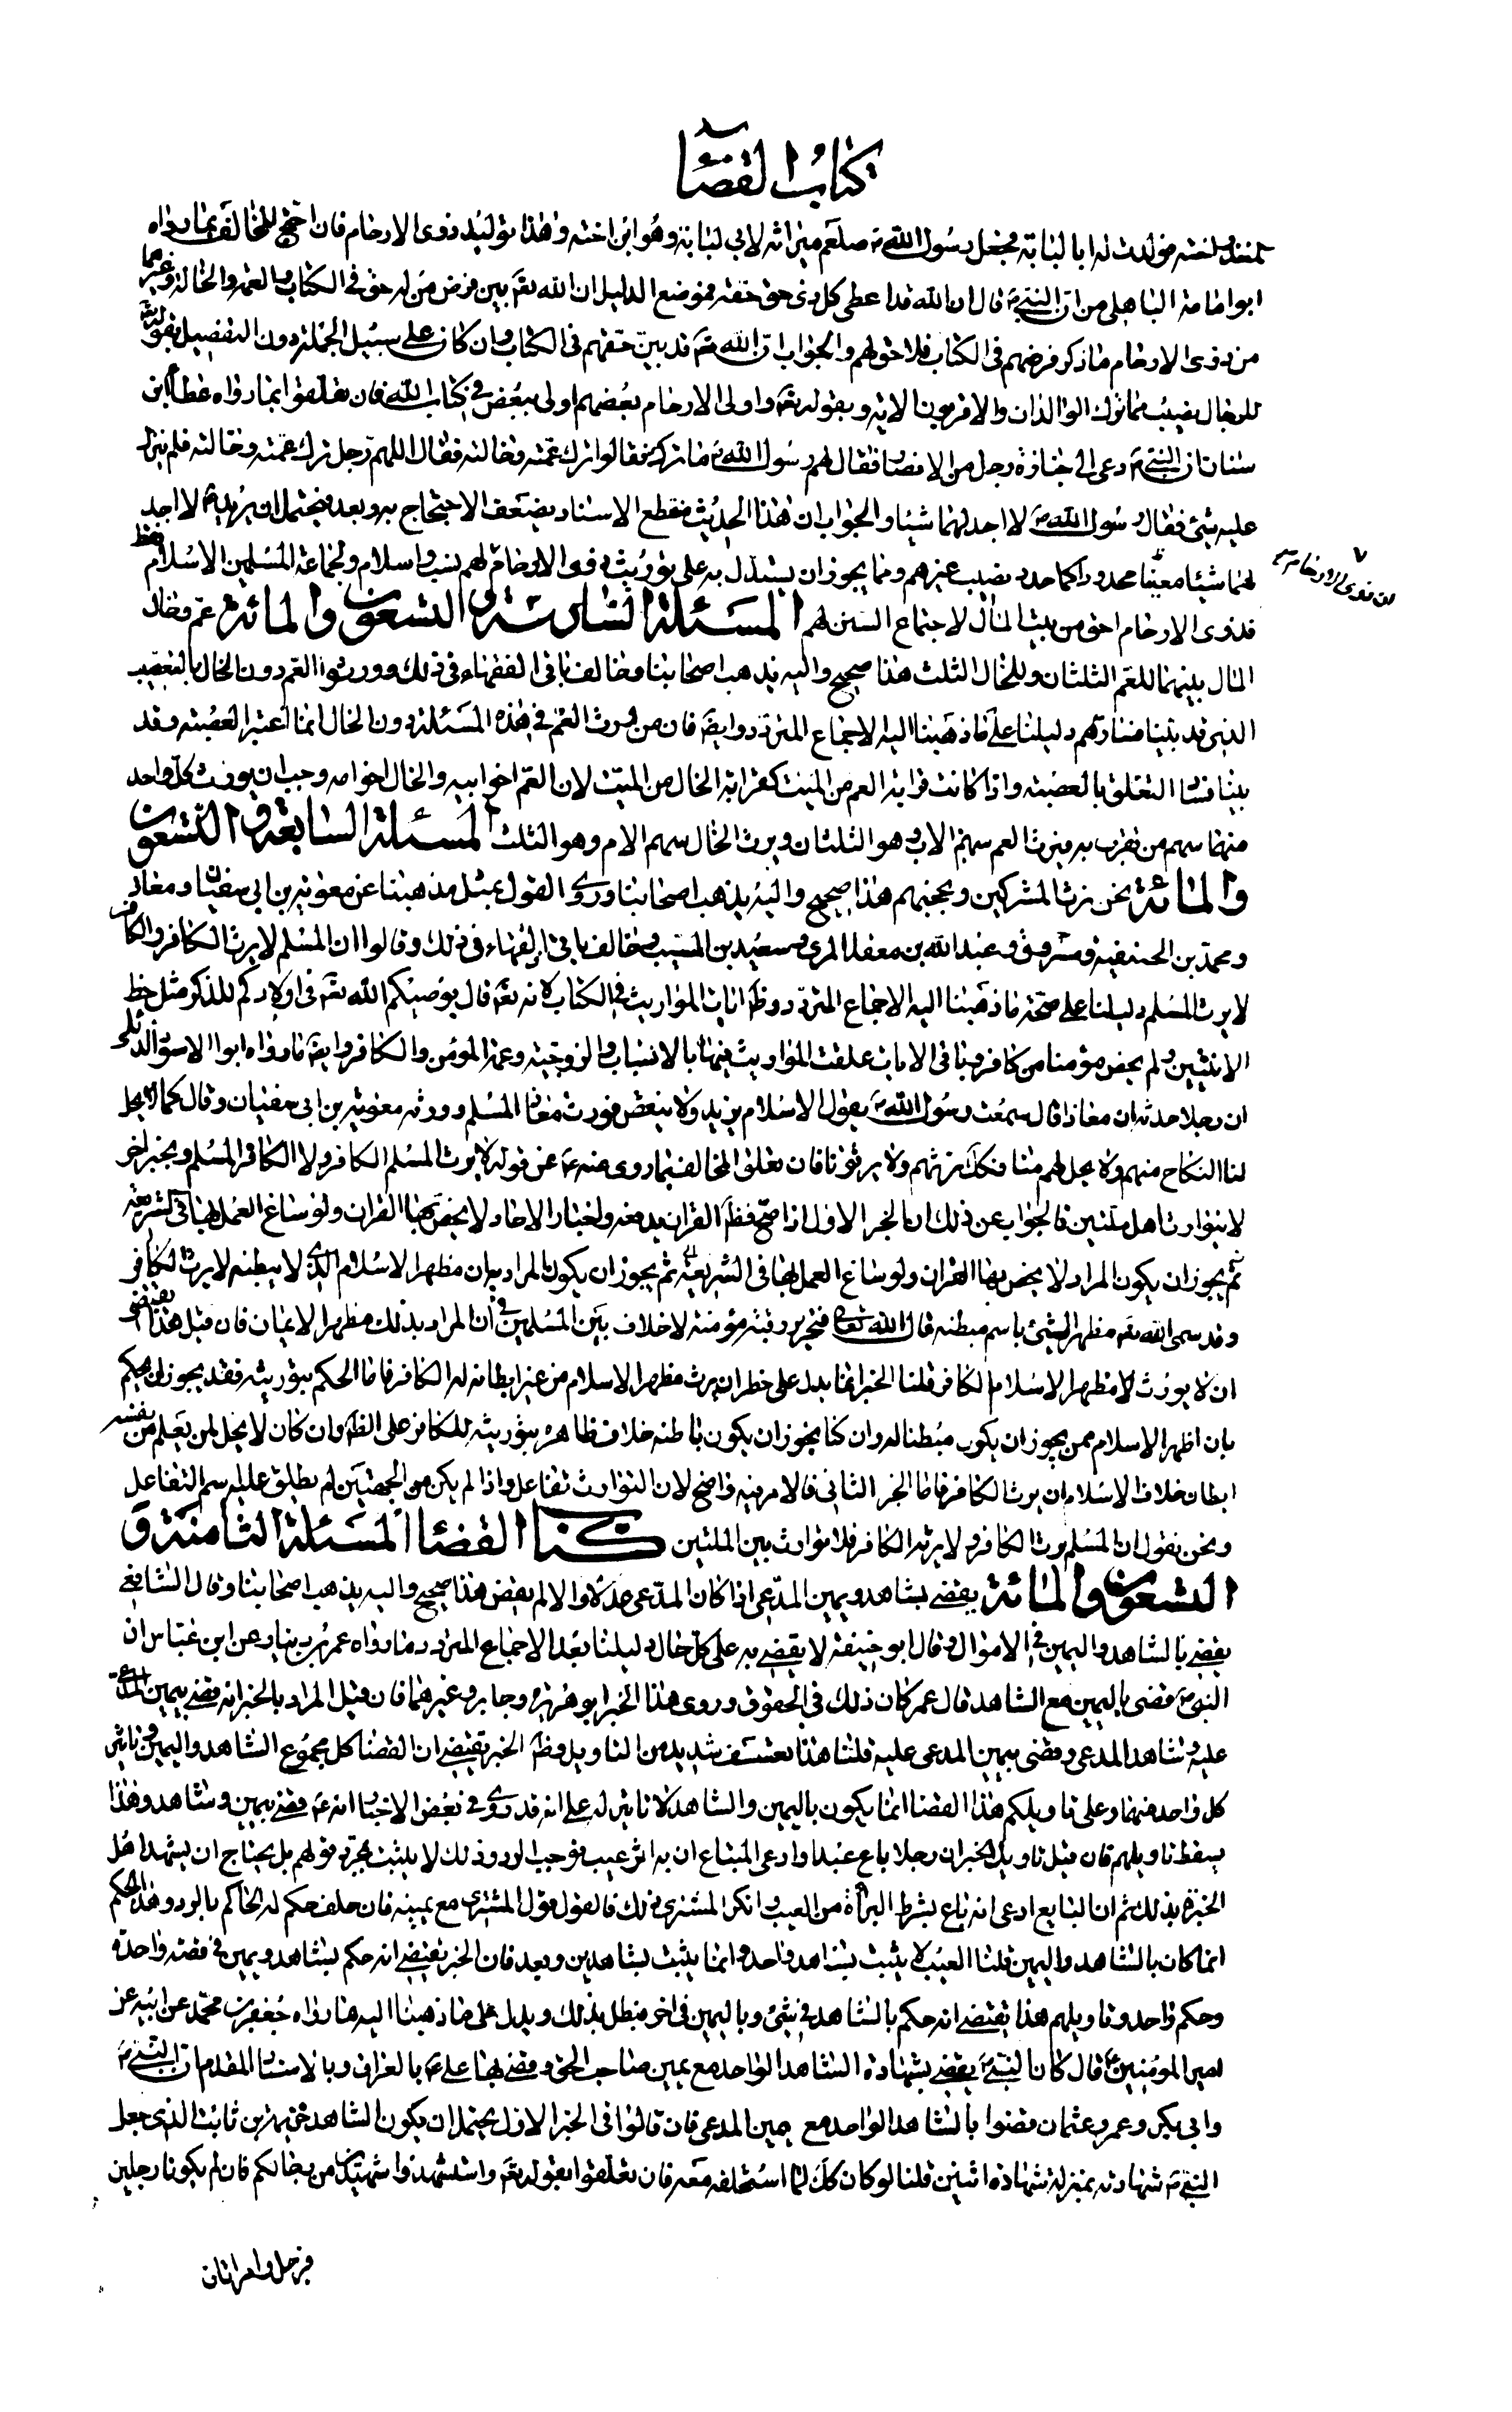 كتاب القضاء
لمنذر اخته فولدت له ابا لبابة فجعل رسول الله ص صلعم ميراثه لابي لبابة وهو ابن اخته وهذا توليد ذوي الارحام فان احتج المخالف بما رواه
ابو امامة الباهلي من ان النبي ص قال ان الله قد اعطى كل ذي حق حقه فموضع الدليل ان الله تعم بين فرض من له حق في الكتاب والعمة والخالة وغيرهما
من ذوي الارحام ما ذكر فرضهم في الكتاب فلا حق لهم والجواب ان الله تعم قد بين حقهم في الكتاب وان كان على سبيل الجملة دون التفصيل بقوله تعم
للرجال نصيب مما ترك الوالدان والاقربون الاية وبقوله تعم واولى الارحام بعضهم اولى ببعض في كتاب الله فان تعلقوا بما رواه عطاء ابن
سنان ان النبي ص دعى الى جنازة رجل من الانصار فقال لهم رسول الله ص ما ترك فقالوا ترك عمته وخالته فقال اللهم رجل ترك عمته وخالته فلم ينزل
عليه شئ فقال رسول الله ص لا اجد لهما شيئا والجواب ان هذا الحديث منقطع الاسناد يضعف الاحتجاج به وبعد فيحتمل ان يريد به لا اجد
لهما شيئا معينا محدودا كما حدد نصيب غيرهم ومما يجوز ان يستدل به على توريث ذوي الارحام لهم نسب واسلام ولجماعة المسلمين الاسلام فقط
ان ذوي الارحام
فذوي الارحام احق من بيت المال لاجتماع السببين لهم المسئلة السادسة والتسعون والمائة عم وخال
المال بينهما للعم الثلثان وللخال الثلث هذا صحيح واليه يذهب اصحابنا وخالف باقي الفقهاء في ذلك وورثوا العم دون الخال بالتعصيب
الذي قد بينا فساده دليلنا على ما ذهبنا اليه الاجماع المتردد وايضا فان من ورث العم في هذه المسئلة دون الخال انما اعتبر العصبة وقد
بينا فساد التعلق بالعصبة واذا كانت قرابة العم من الميت كقرابة الخال من الميت لان العم اخو ابيه والخال اخو امه وجب ان يورث كل واحد
منهما سهم من تقرب به فيرث العم سهم الاب وهو الثلثان ويرث الخال سهم الام وهو الثلث المسئلة السابعة والتسعون
والمائة نحن نرث المشركين ونحجبهم هذا صحيح واليه يذهب اصحابنا وروى القول بمثل مذهبنا عن معوية بن ابي سفيان ومعاذ
ومحمد بن الحنفية ومسروق وعبد الله بن معقل المزني وسعيد بن المسيب وخالف باقي الفقهاء في ذلك وقالوا ان المسلم لا يرث الكافر والكافر
لا يرث المسلم دليلنا على صحة ما ذهبنا اليه الاجماع المتردد وظ ايات المواريث في الكتاب لانه تعم قال يوصيكم الله تعم في اولادكم للذكر مثل حظ
الانثيين ولم يخص مؤمنا من كافر وباقي الايات علقت المواريث فيها بالانساب والزوجية وعم المؤمن والكافر وايضا ما رواه ابو الاسود الدئلي
ان رجلا حدثه ان معاذا قال سمعت رسول الله ص يقول الاسلام يزيد ولا ينقص فورث معاذ المسلم وورثه معوية بن ابي سفيان وقال كما يحل
لنا النكاح منهم ولا يحل لهم منا فكك نرثهم ولا يرثونا فان تعلق المخالف بما روى عنه ع من قوله لا يرث المسلم الكافر ولا الكافر المسلم وبخبر اخر
لا يتوارث اهل ملتين فالجواب عن ذلك ان الخبر الاول اذا صح فظ القران يدفعه واخبار الاحاد لا يخص بها القران ولو ساغ العمل بها في الشريعة
ثم يجوز ان يكون المراد لا يخص بها القران ولو ساغ العمل بها في الشريعة ثم يجوز ان يكون المراد به ان مظهر الاسلام الذي لا يبطنه لا يرث الكافر
وقد سمى الله تعم مظهر الشئ باسم مبطنه قال الله تعم فتحرير رقبة مؤمنة لا خلاف بين المسلمين في ان المراد بذلك مظهر الايمان فان قيل هذا يقتضى
ان لا يورث مظهر الاسلام الكافر قلنا الخبر انما يدل على حظر ان يرث مظهر الاسلام من غير ابطانه له الكافر فاما الحكم بتوريثه فقد يجوز لمن يحكم
بان اظهر الاسلام ممن يجوز ان يكون مبطنا له وان كنا نجوز ان يكون باطنه خلاف ظاهره بتوريثه للكافر على الظ وان كان لا يحل لمن يعلم من نفسه
ابطان خلاف الاسلام ان يرث الكافر فاما الخبر الثاني فالامر فيه واضح لان التوارث تفاعل واذا لم يكن من الجهتين لم يطلق عليه اسم التفاعل
ونحن نقول ان المسلم يرث الكافر ولا يرثه الكافر فلا توارث بين الملتين كتاب القضاء المسئلة الثامنة و
التسعون والمائة يقضى بشاهد ويمين المدعى اذا كان المدعى عدلا والا لم يقض هذا صحيح واليه يذهب اصحابنا وقال الشافعي
يقضى بالشاهد واليمين في الاموال وقال ابو حنيفة لا يقضى به على كل حال دليلنا بعد الاجماع المتردد ما رواه عمرو بن دينار عن ابن عباس ان
النبي ص قضى باليمين مع الشاهد قال عمر كان ذلك في الحقوق وروى هذا الخبر ابو هريرة وجابر وغيرهما فان قيل المراد بالخبر انه قضى بيمين المدعى
عليه وشاهد المدعى وقضى بيمين المدعى عليه قلنا هذا تعسف شديد من التاويل وظ الخبر يقتضى ان القضا كل مجموع الشاهد واليمين وتاثير
كل واحد منهما وعلى تاويلكم هذا القضا انما يكون باليمين والشاهد لا تاثير له على انه قد روى في بعض الاخبار انه ع قضى بيمين وشاهد وهذا
يسقط تاويلهم فان قيل تاويل الخبر ان رجلا باع عبدا وادعى المبتاع ان به اثر عيب فوجب الرد وذلك لا يثبت بمجرد قولهم بل يحتاج ان يشهد اهل
الخبرة بذلك ثم ان البايع ادعى انه باع بشرط البرأة من العيب وانكر المشترى ذلك فالقول قول المشترى مع يمينه فان حلف حكم له الحاكم بالرد وهذا الحكم
انما كان بالشاهد واليمين قلنا العيب لا يثبت بشاهد واحد وانما يثبت بشاهدين وبعد فان الخبر يقتضى انه حكم بشاهد ويمين في قصة واحدة
وحكم واحد وتاويلهم هذا يقتضى انه حكم بالشاهد في شئ وباليمين في اخر فبطل بذلك ويدل على ما ذهبنا اليه ما رواه جعفر بن محمد عن ابيه عن
امير المومنين ع قال كان النبي ص يقضى بشهادة الشاهد الواحد مع يمين صاحب الحق وقضى بها على ع بالعراق وبالاسناد المقدم ان النبي ص
وابي بكر وعمر وعثمان قضوا بالشاهد الواحد مع يمين المدعى فان قالوا في الخبر الاول يحتمل ان يكون الشاهد خزيمة بن ثابت الذي جعل
النبي ص شهادته بمنزلة شهادة اثنين قلنا لو كان كك لما استحلفه معه فان تعلقوا بقوله تعم واستشهدوا شهيدين من رجالكم فان لم يكونا رجلين
فرجل وامراتان